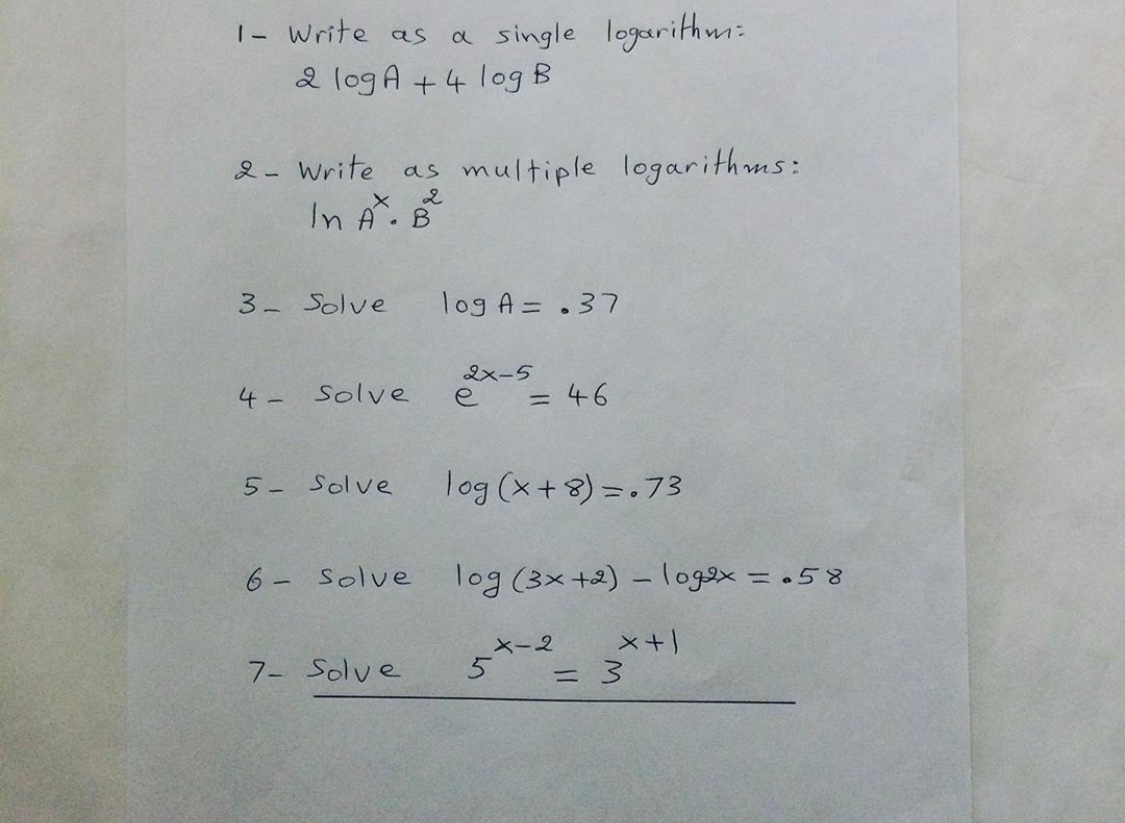 1- Write as a single logarithm:
2 log A + 4 log B
2- Write as multiple logarithms:
ln Aˣ. B²
3- Solve log A = .37
4- Solve e^2x-5 = 46
5- Solve log (x+8) = .73
6- Solve log (3x+2) - log2x = .58
7- Solve 5^x-2 = 3^x+1